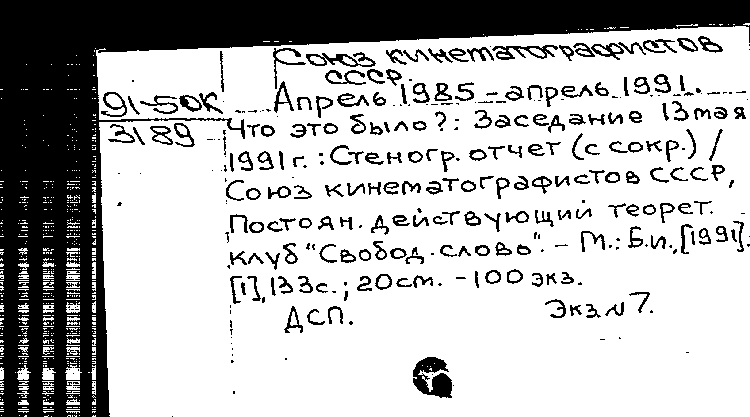 Союз кинематографистов
СССР.
91-50К
3189
Апрель 1985 - апрель 1991.
Что это было?: Заседание 13 мая
1991 г.: Стеногр. отчет (с сокр.) /
Союз кинематографистов СССР,
Постоян. действующий теорет.
клуб "Свобод. слово". - М.: Б.и., [1991].
[1], 133с.; 20см. - 100 экз.
ДСП. Экз. № 7.